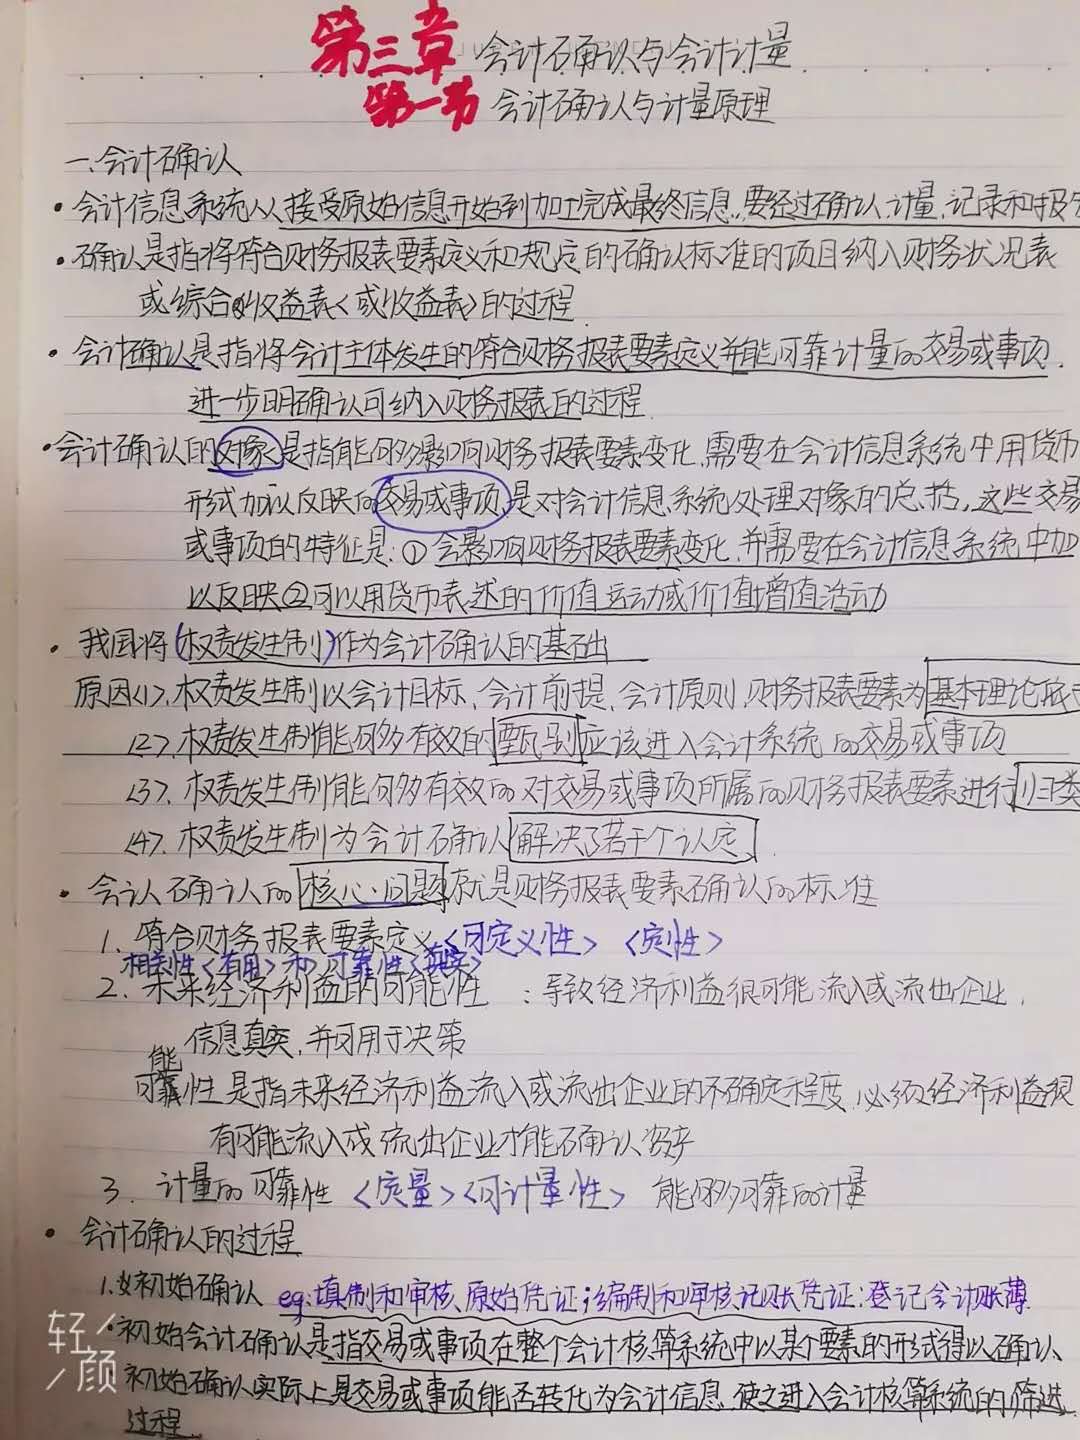 第三章 会计确认与会计计量
第一节 会计确认与计量原理
一、会计确认
·会计信息系统从接受原始信息开始到加工完成最终信息,要经过确认、计量、记录和报告
·确认是指将符合财务报表要素定义和规定的确认标准的项目纳入财务状况表
或综合收益表<或收益表>的过程
·会计确认是指将会计主体发生的符合财务报表要素定义并能可靠计量的交易或事项
进一步明确认可纳入财务报表的过程
·会计确认的对象<是指能够影响财务报表要素变化,需要在会计信息系统中用货币
形式加以反映的交易或事项,是对会计信息系统处理对象的总括,这些交易
或事项的特征是:①会影响财务报表要素变化,并需要在会计信息系统中加
以反映②可以用货币表述的价值运动或价值增值活动
·我国将(权责发生制)作为会计确认的基础
原因<1>.权责发生制以会计目标、会计前提、会计原则、财务报表要素为基本理论依
<2>.权责发生制能够有效的甄别应该进入会计系统的交易或事项
<3>.权责发生制能够有效的对交易或事项所属的财务报表要素进行归类
<4>.权责发生制为会计确认解决了若干个认定
·会认确认的核心问题就是财务报表要素确认的标准
1.符合财务报表要素定义<可定义性> <定性>
相关性<有用>和可靠性<真实>
2.未来经济利益的可能性 :导致经济利益很可能流入或流出企业,
信息真实,并可用于决策
能
可靠性是指未来经济利益流入或流出企业的不确定程度,必须经济利益很
有可能流入或流出企业才能确认资产
3. 计量的可靠性 <定量><可计量性> 能够可靠的计量
·会计确认的过程
1.初始确认 eg:填制和审核原始凭证;编制和审核记账凭证;登记会计账薄
·初始会计确认是指交易或事项在整个会计核算系统中以某个要素的形式得以确认、
·初始确认实际上是交易或事项能否转化为会计信息,使之进入会计核算系统的筛选
过程
轻颜